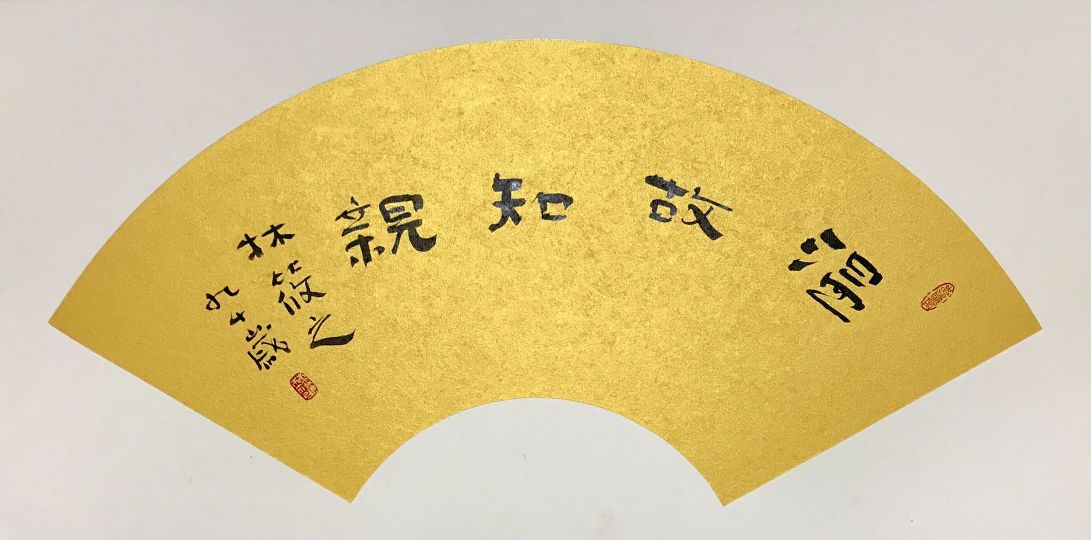 故知親
林筱之
九十歲